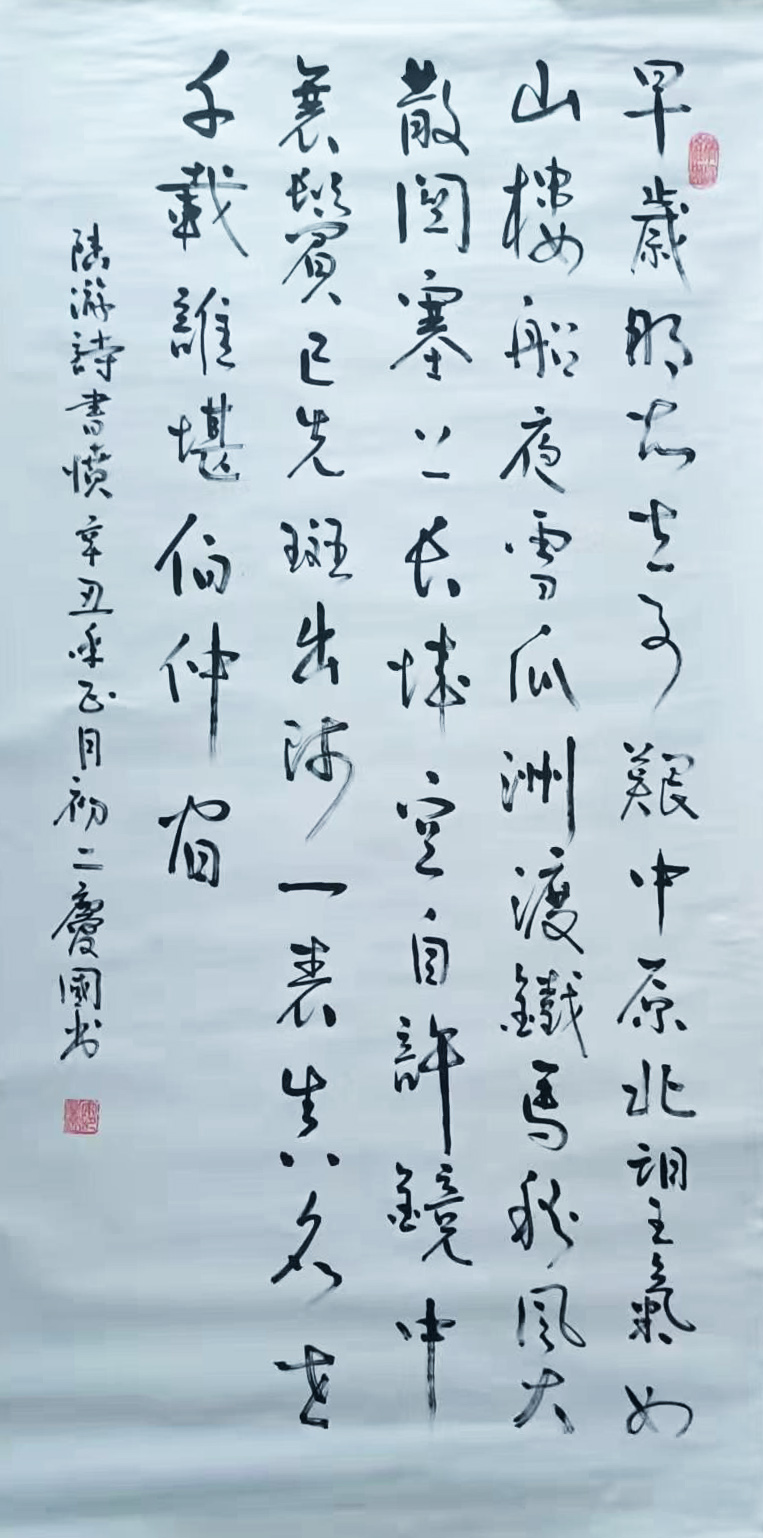 早歲那知世事艱中原北望氣如
山樓船夜雪瓜洲渡鐵馬秋風大
散関塞上長城空自許鏡中
衰鬢已先斑出師一表真名世
千載誰堪伯仲間
陸游詩書憤辛丑年正月初二慶國书